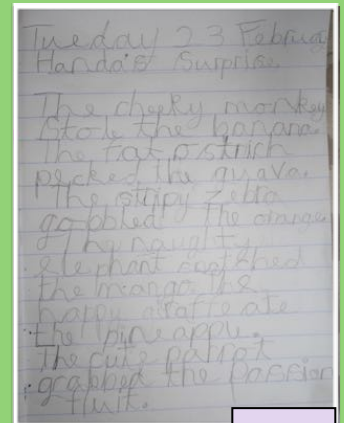 Tueday 23 Februa
Handa's Surprise
The cheeky monkey
Stole the banana.
The fat ostrich
pecked the guava.
The stripy zebra
gobbled the orange.
The naughty
elephant the mango. The
happy giraffe ate
the pineapple.
the cute parrot
grabbed the Passion
fluit.